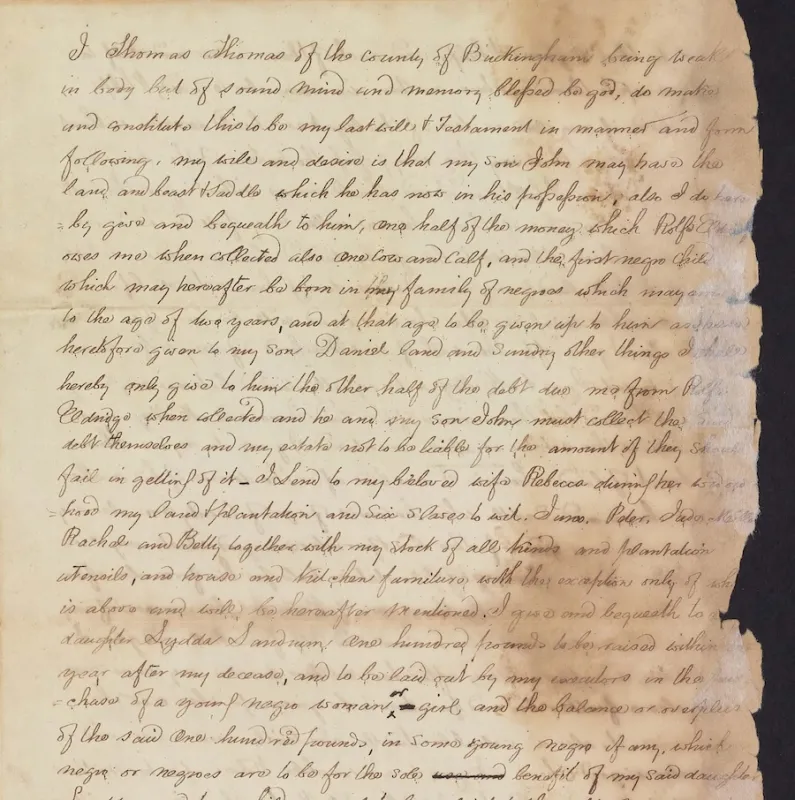 I Thomas Thomas of the county of Buckingham being weak
in body but of sound mind and memory blessed be god, do make
and constitute this to be my last will & Testament in manner and form
following, my will and desire is that my son John may have the
land and beast & saddle which he has now in his possession, also I do here
=by give and bequeath to him, one half of the money which Rolfe
owes me when collected also one Cow and Calf, and the first negro Chil
which may hereafter be born in my family of negroes which may
to the age of two years, and at that age to be given up to him
heretofore given to my son Daniel land and sundry other things I
hereby only give to him the other half of the debt due me from
Eldridge when collected and he and my son John must collect the
debt themselves and my estate not to be liable for the amount if they
fail in getting of it – I Lend to my beloved wife Rebecca during her
=hood my land & plantation and Six Slaves to wit. Juno. Peter.
Rachel and Betty together with my stock of all kinds and plantation
utensils, and house and kitchen furniture with the exception only of
is above and will be hereafter mentioned. I give and bequeath to
daughter Lydda Landrum one hundred pounds to be raised within
year after my decease, and to be laid out by my executors in the
=chase of a young negro woman or girl, and the balance or overplus
of the said one hundred pounds, in some young negro if any, which
negro or negroes are to be for the sole use and benefit of my said daughter